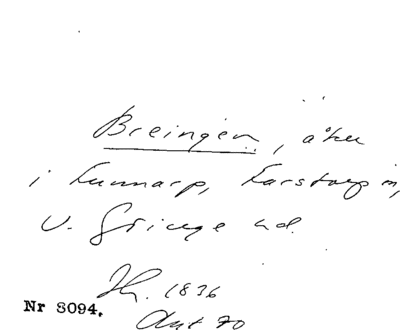 Breingen, åker
i Lunnarp, Karstorp m,
V. Göinge hd.
Th. 1836
Akt 70
Nr 8094.